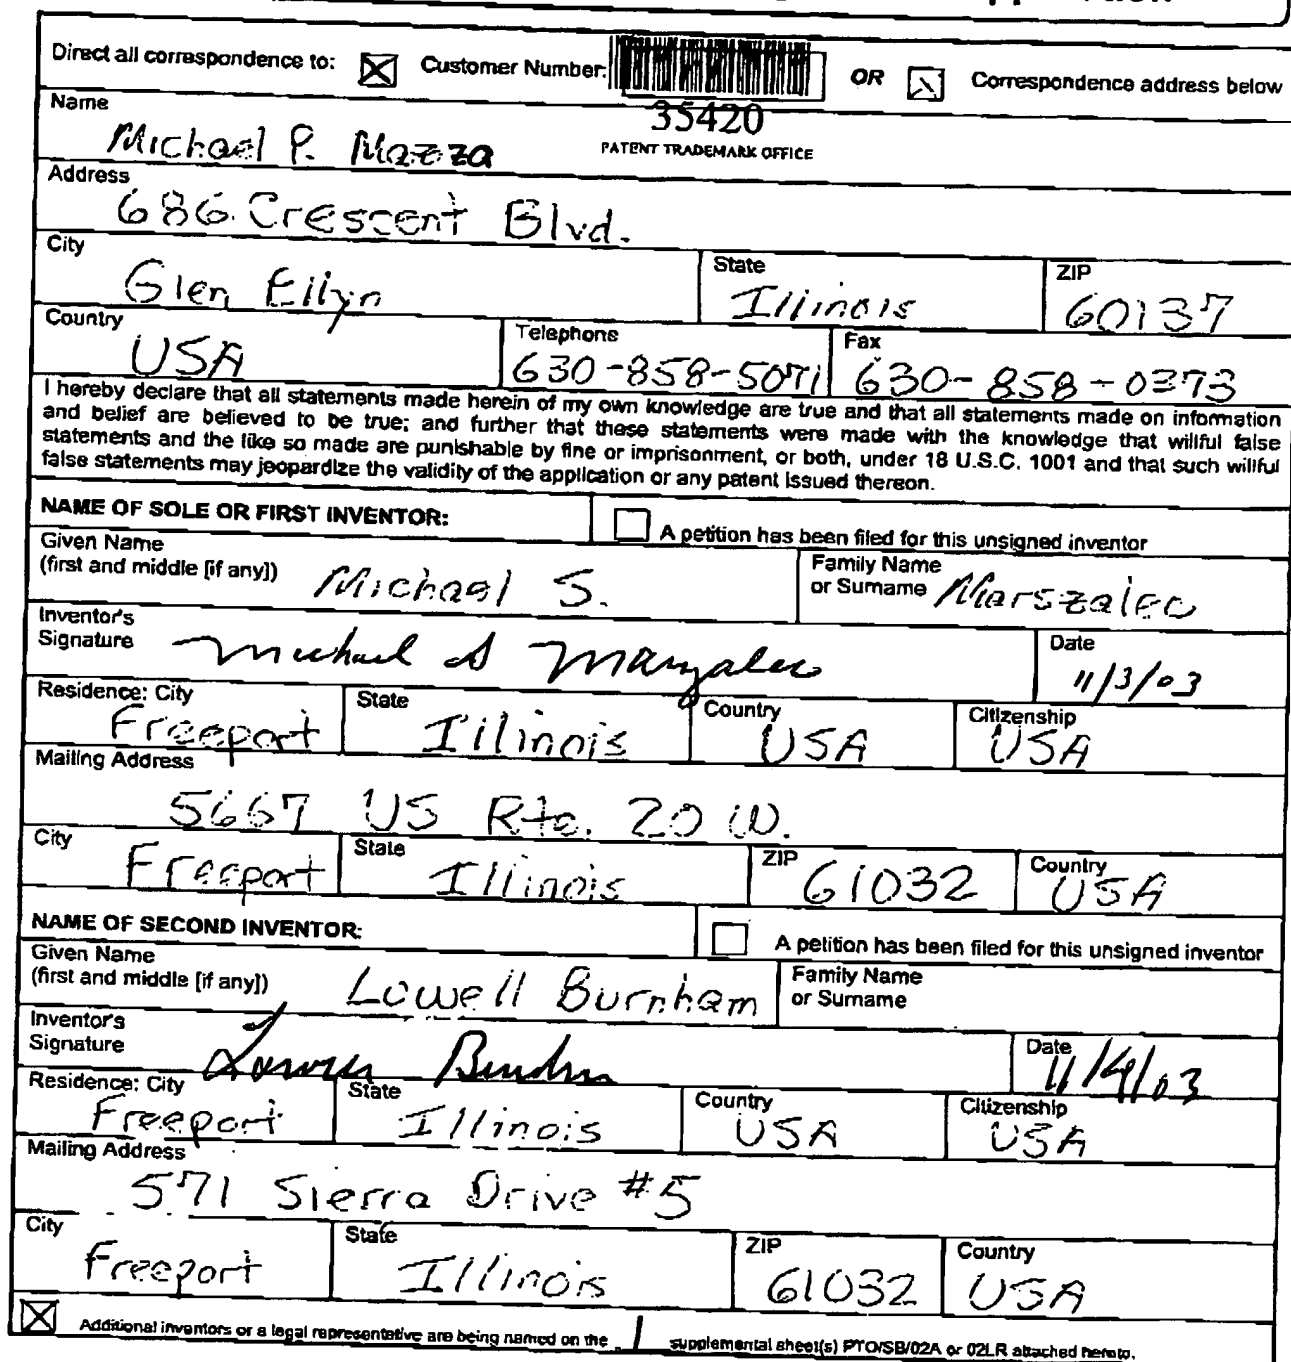 Direct all correspondence to: Customer Number: OR Correspondence address below
35420
PATENT TRADEMARK OFFICE
Name
Michael P. Mazza
Address
686 Crescent Blvd.
City State ZIP
Glen Ellyn Illinois 60137
Country Telephone Fax
USA 630-858-5071 630-858-0373
I hereby declare that all statements made herein of my own knowledge are true and that all statements made on information
and belief are believed to be true; and further that these statements were made with the knowledge that willful false
statements and the like so made are punishable by fine or imprisonment, or both, under 18 U.S.C. 1001 and that such willful
false statements may jeopardize the validity of the application or any patent issued thereon.
NAME OF SOLE OR FIRST INVENTOR: A petition has been filed for this unsigned inventor
Given Name Family Name
(first and middle [if any]) Michael S. or Surname Marszalec
Inventor's
Signature Michael S Marszalec Date
11/3/03
Residence: City State Country Citizenship
Freeport Illinois USA USA
Mailing Address
5667 US Rte. 20 W.
City State ZIP Country
Freeport Illinois 61032 USA
NAME OF SECOND INVENTOR: A petition has been filed for this unsigned inventor
Given Name Family Name
(first and middle [if any]) Lowell Burnham or Surname
Inventor's
Signature Date
11/4/03
Residence: City State Country Citizenship
Freeport Illinois USA USA
Mailing Address
571 Sierra Drive #5
City State ZIP Country
Freeport Illinois 61032 USA
Additional inventors or a legal representative are being named on the supplemental sheet(s) PTO/SB/02A or 02LR attached hereto.